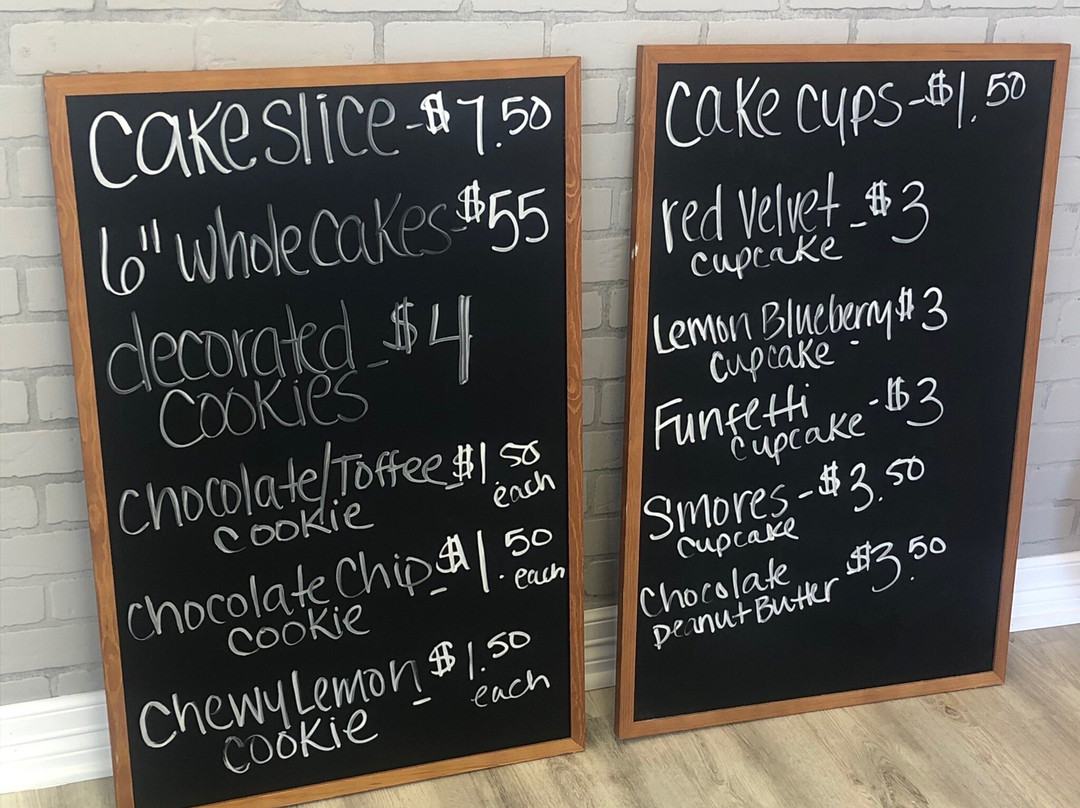 Cake slice - $7.50
6" whole cakes - $55
decorated - $4
cookies
chocolate/Toffee - $1.50
cookie each
chocolate chip - $1.50
cookie each
Chewy Lemon - $1.50
cookie each
Cake cups - $1.50
red velvet - $3
cupcake
Lemon Blueberry $3
cupcake -
Funfetti - $3
cupcake
Smores - $3.50
cupcake
Chocolate $3.50
peanut Butter